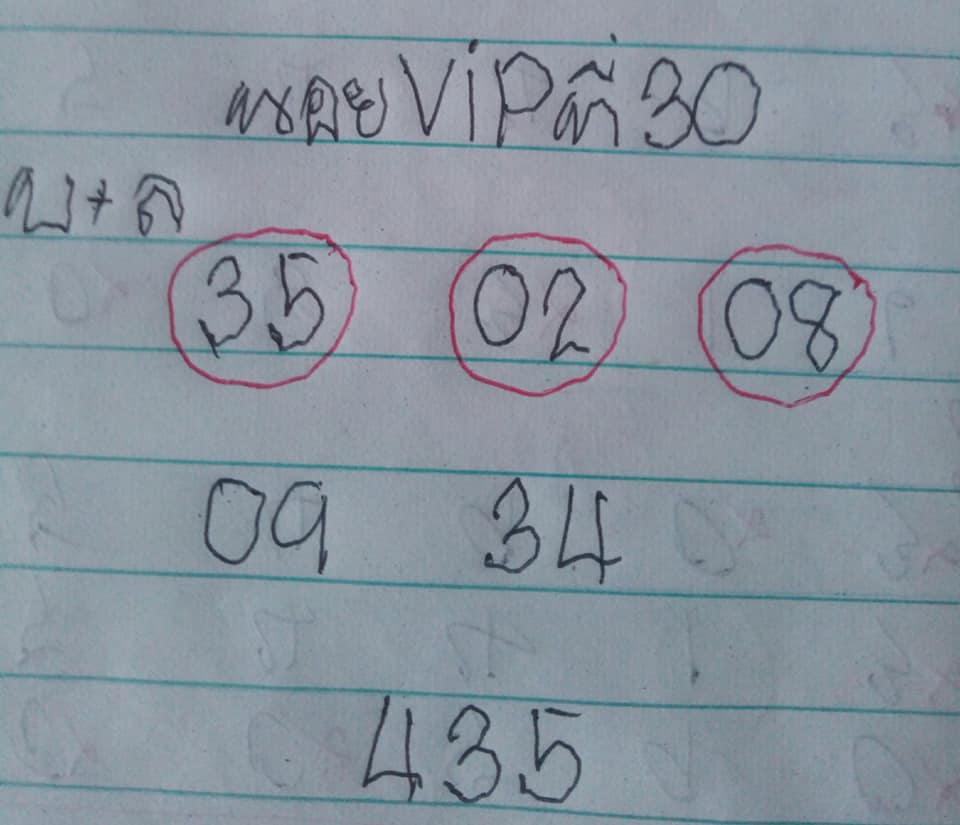 ViP 30
บ+ล
35 02 08
09 34
435